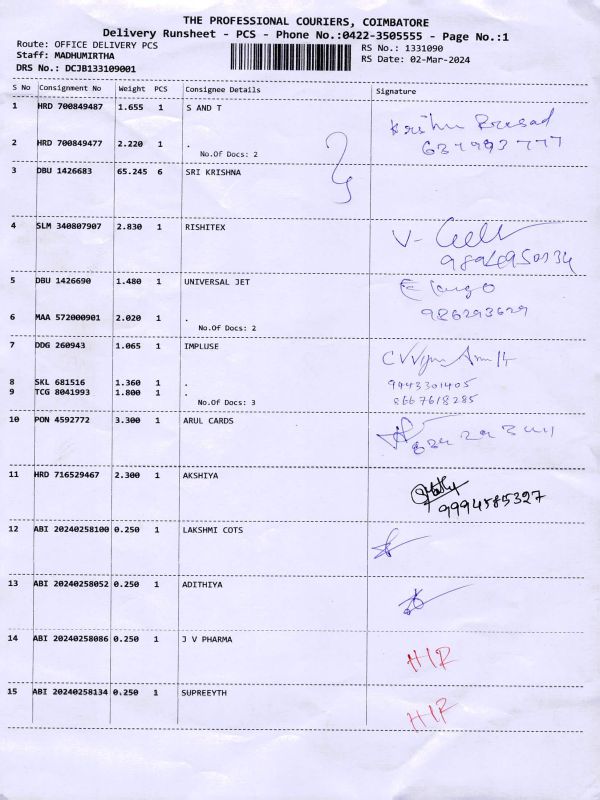 THE PROFESSIONAL COURIERS, COIMBATORE
Delivery Runsheet - PCS - Phone No.:0422-3505555 - Page No.:1
Route: OFFICE DELIVERY PCS
Staff: MADHUMIRTHA
DRS No.: DCJB133109001
RS No.: 1331090
RS Date: 02-Mar-2024
S No Consignment No Weight PCS Consignee Details Signature
1 HRD 700849487 1.655 1 S AND T
2 HRD 700849477 2.220 1 .
No.Of Docs: 2
3 DBU 1426683 65.245 6 SRI KRISHNA
4 SLM 340807907 2.830 1 RISHITEX
V-
5 DBU 1426690 1.480 1 UNIVERSAL JET
986293629
6 MAA 572000901 2.020 1 .
No.Of Docs: 2
7 DDG 260943 1.065 1 IMPLUSE
8 SKL 681516 1.360 1 . 9443301405
9 TCG 8041993 1.800 1 . 8667618285
No.Of Docs: 3
10 PON 4592772 3.300 1 ARUL CARDS
11 HRD 716529467 2.300 1 AKSHIYA
9994585327
12 ABI 20240258100 0.250 1 LAKSHMI COTS
13 ABI 20240258052 0.250 1 ADITHIYA
14 ABI 20240258086 0.250 1 J V PHARMA
15 ABI 20240258134 0.250 1 SUPREEYTH